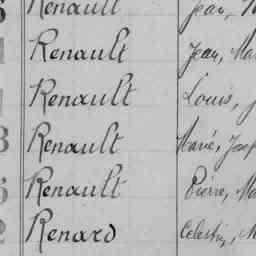 Renault Jean,
Renault Jean, Ma
Renault Louis, J
3 Renault Marie, Josep
Renault Pierre, Ma
2 Renard Celestin, M